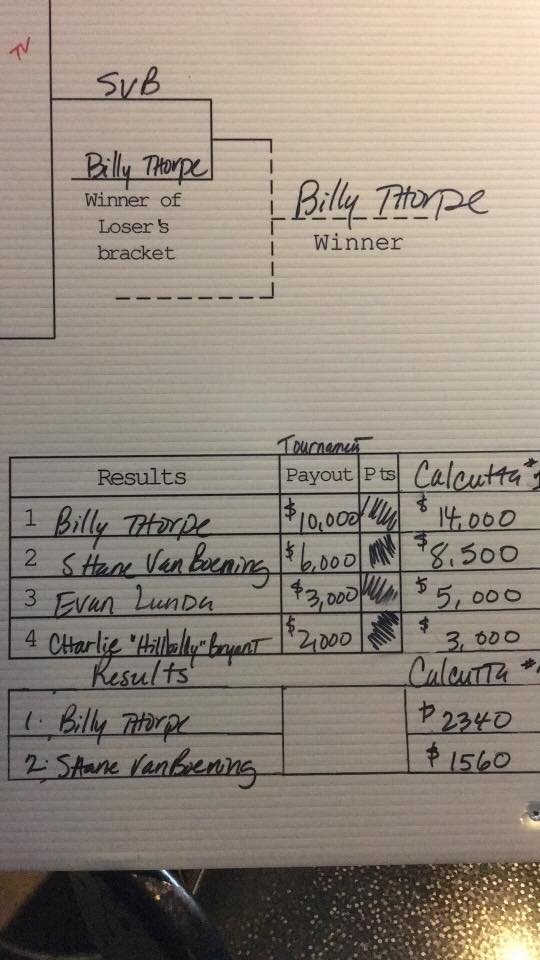 TV
SVB
Billy THorpe
Winner of
Loser's
bracket
Billy THorpe
Winner
Tournament
Results Payout Pts Calcutta #1
1 Billy THorpe $10,000 $14,000
2 SHane VanBoening $6,000 $8,500
3 Evan Lunda $3,000 $5,000
4 CHarlie "Hillbilly" Bryant $2,000 $3,000
Results Calcutta #
1. Billy THorpe $2340
2. SHane VanBoening $1560